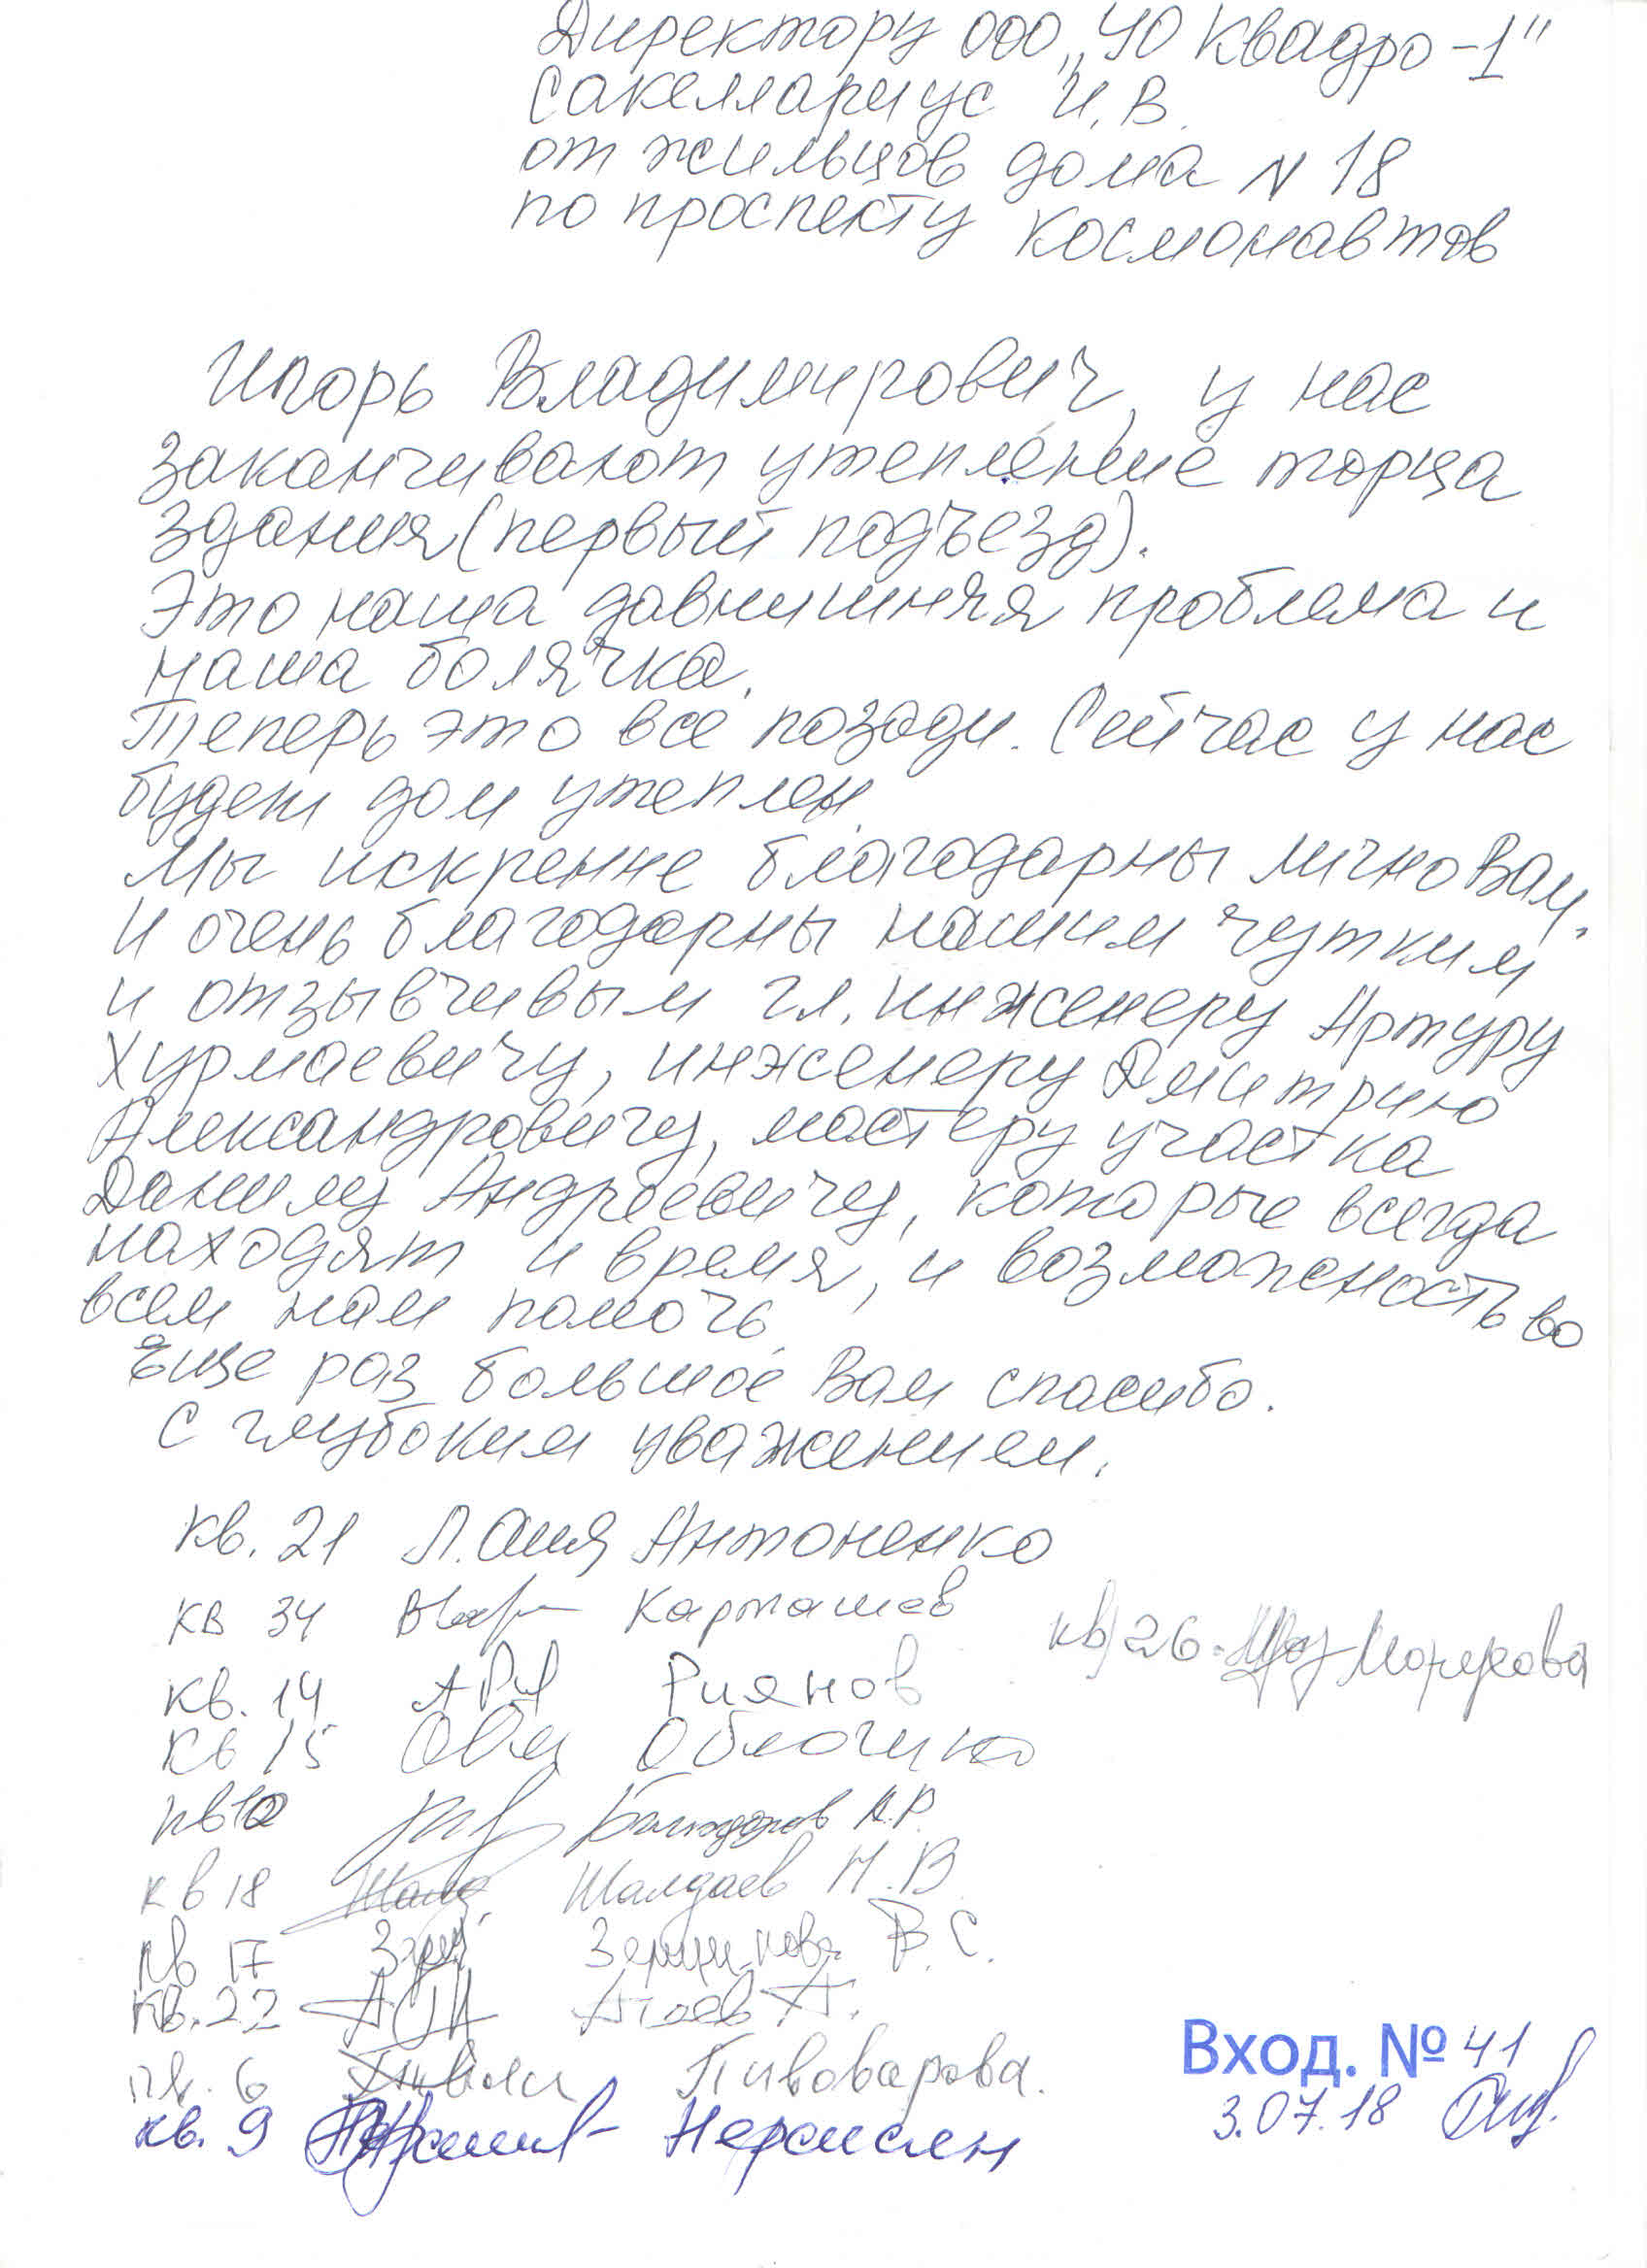 Директору ООО „УО Квадро-1"
Сакеллариус И.В.
от жильцов дома N 18
по проспекту Космонавтов
Игорь Владимирович, у нас
заканчивают утепление торца
здания (первый подъезд).
Это наша давнишняя проблема и
наша болячка.
Теперь это все позади. Сейчас у нас
будет дом утеплен.
Мы искренне благодарны лично Вам.
И очень благодарны нашим чутким
и отзывчивым гл. инженеру Артуру
Хурмаевичу, инженеру Дмитрию
Александровичу, мастеру участка
Данилу Андреевичу, которые всегда
находят и время, и возможность во
всем нам помочь.
Еще раз большое Вам спасибо.
С глубоким уважением.
кв. 21 Антоненко
кв 34 Карташев
кв 26
кв. 14 Риянов
кв 15
кв 18 Шалдаев Н.В.
кв 17 В.С.
кв. 22 А.
кв. 6 Пивоварова.
кв. 9 Нерсисян
Вход. № 41
3.07.18